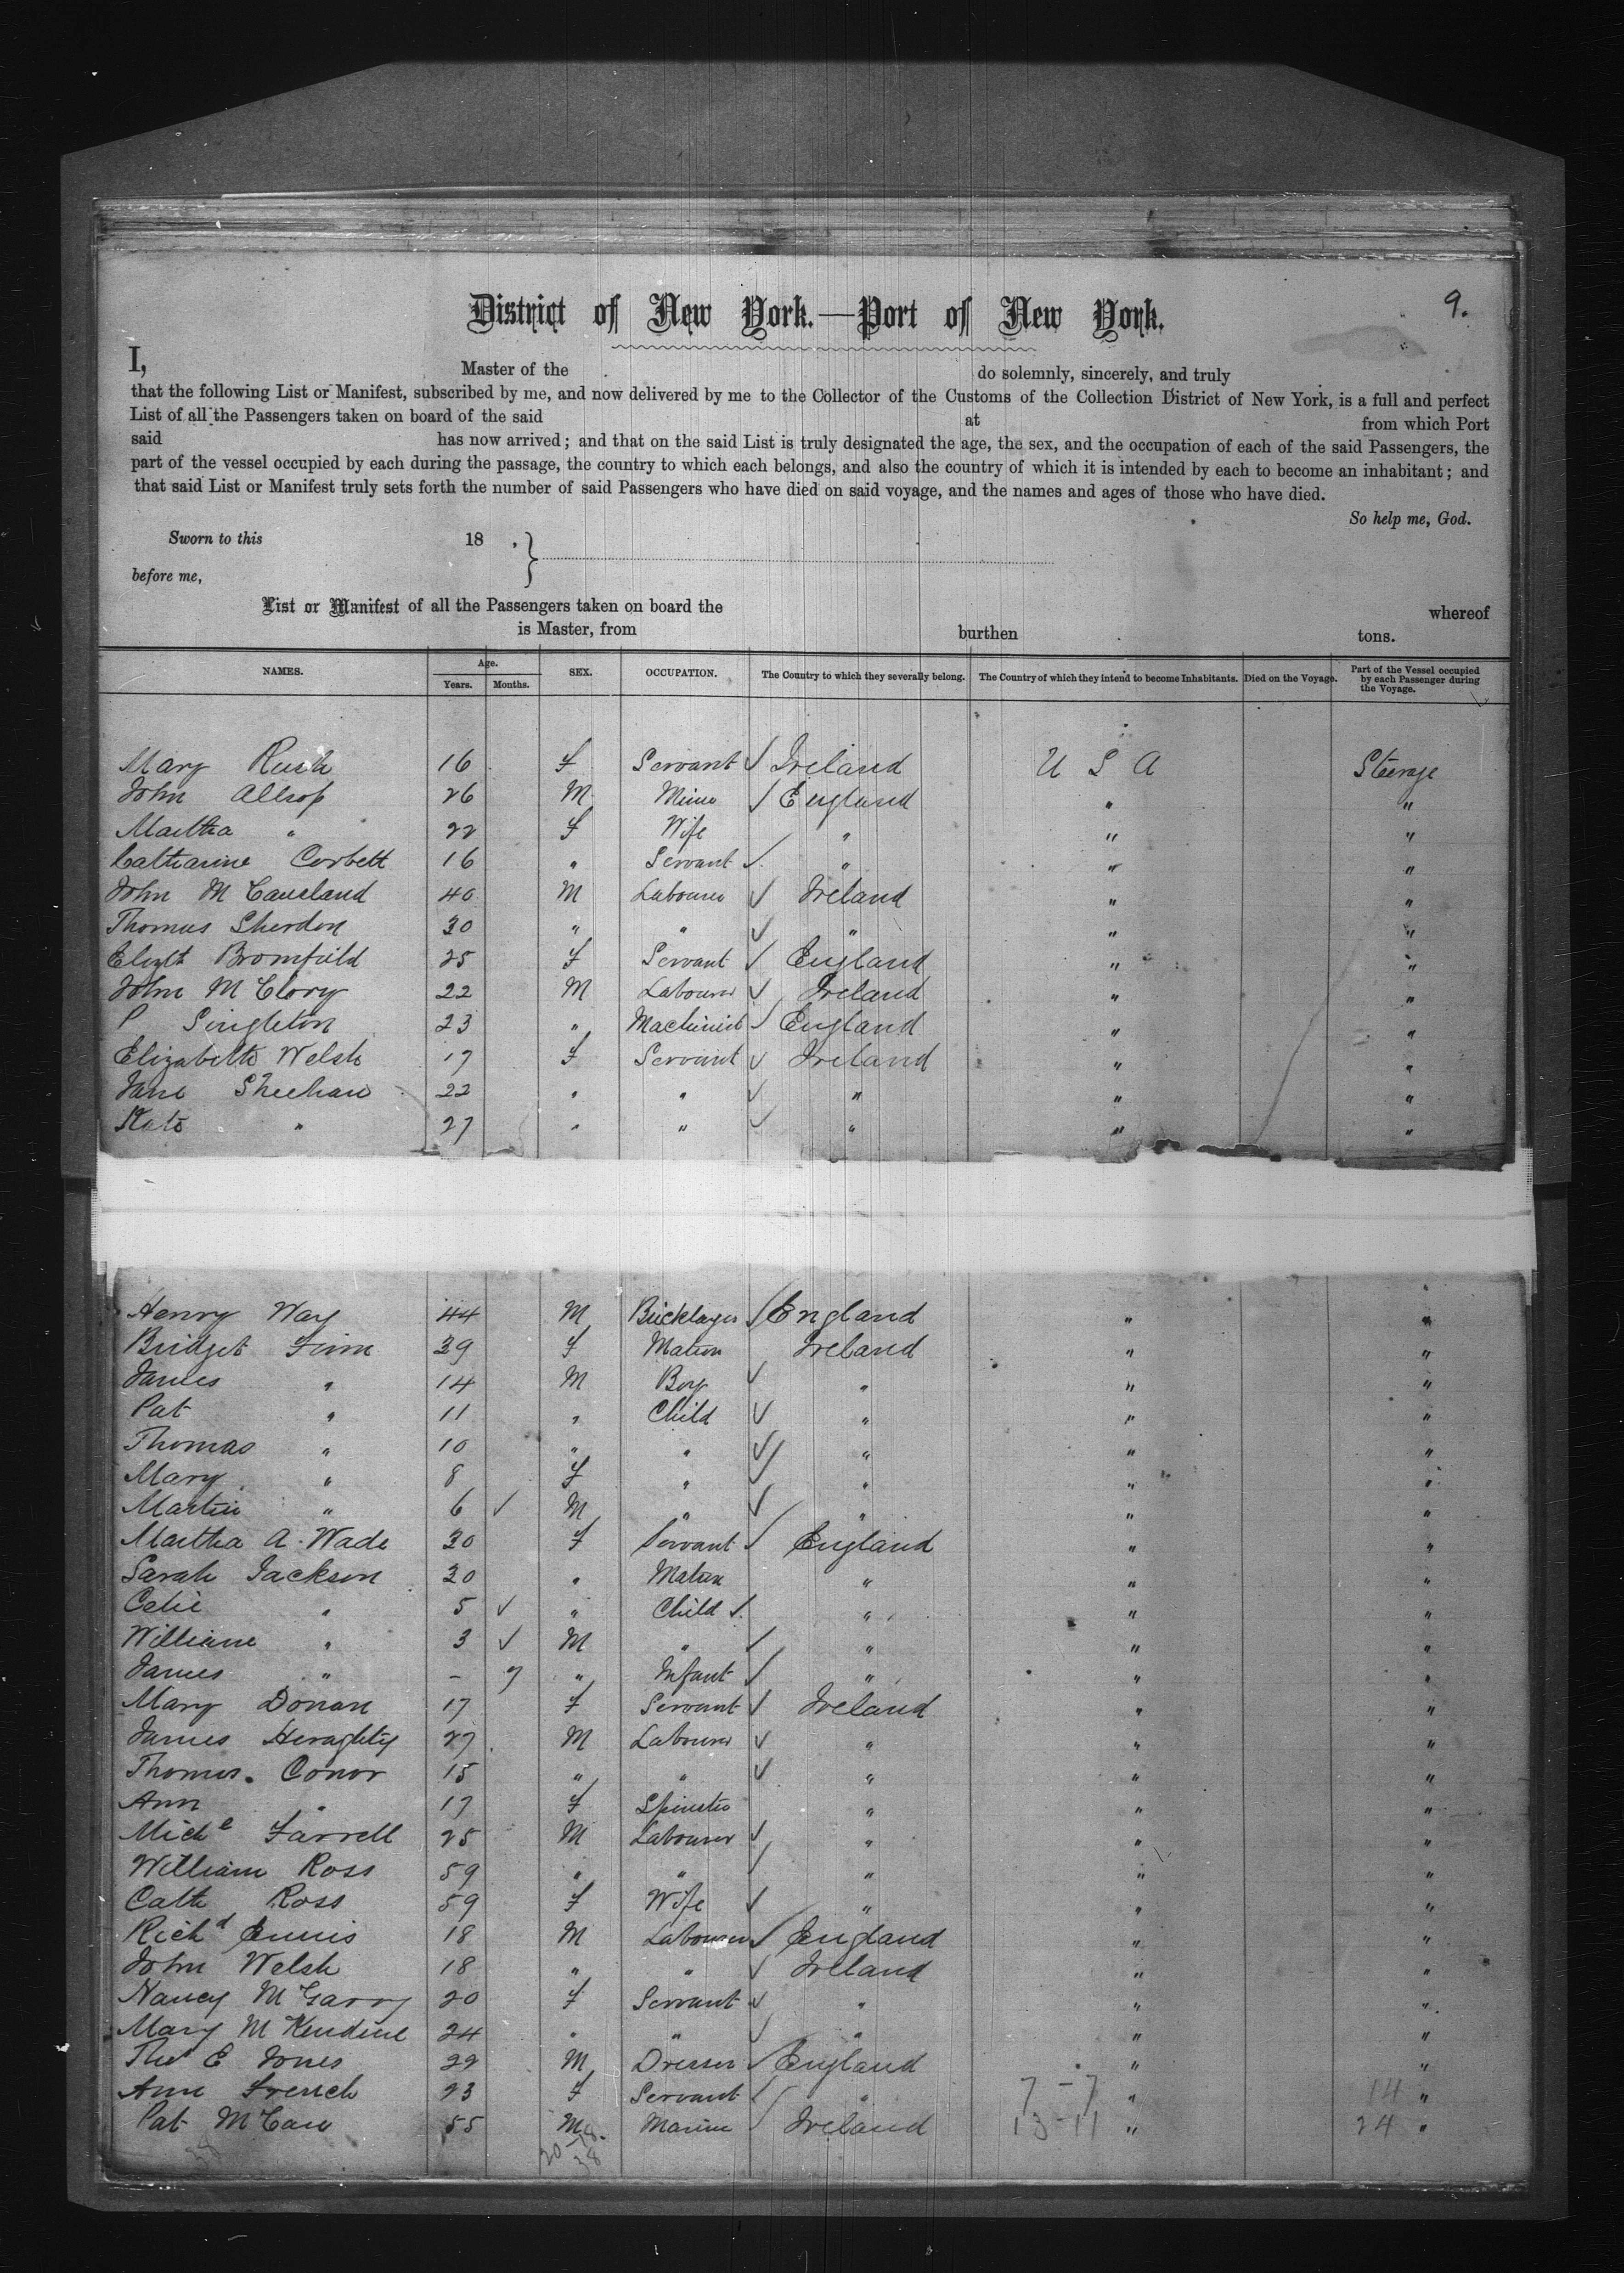 9.
District of New York.—Port of New York.
I, Master of the do solemnly, sincerely, and truly
that the following List or Manifest, subscribed by me, and now delivered by me to the Collector of the Customs of the Collection District of New York, is a full and perfect
List of all the Passengers taken on board of the said at from which Port
said has now arrived; and that on the said List is truly designated the age, the sex, and the occupation of each of the said Passengers, the
part of the vessel occupied by each during the passage, the country to which each belongs, and also the country of which it is intended by each to become an inhabitant; and
that said List or Manifest truly sets forth the number of said Passengers who have died on said voyage, and the names and ages of those who have died.
So help me, God.
Sworn to this 18 .
before me,
List or Manifest of all the Passengers taken on board the whereof
is Master, from burthen tons.
NAMES. Age. Years. Months. SEX. OCCUPATION. The Country to which they severally belong. The Country of which they intend to become Inhabitants. Died on the Voyage. Part of the Vessel occupied by each Passenger during the Voyage.
Mary Rush 16 F Servant ✓ Ireland U S A Steerage
John Allsop 26 M Miner ✓ England " "
Martha " 22 F Wife " " "
Catharine Corbett 16 " Servant ✓ " " "
John McCausland 40 M Labourer ✓ Ireland " "
Thomas Sherdon 30 " " ✓ " " "
Elizth Bromfield 25 F Servant ✓ England " "
John McClory 22 M Labourer ✓ Ireland " "
P Singleton 23 " Machinist ✓ England " "
Elizabeth Welsh 17 F Servant ✓ Ireland " "
Jane Sheehan 22 " " ✓ " " "
Kate " 27 " " ✓ " " "
Henry Way 44 M Bricklayer ✓ England " "
Bridget Finn 39 F Matron Ireland " "
James " 14 M Boy ✓ " " "
Pat " 11 " Child ✓ " " "
Thomas " 10 " " ✓ " " "
Mary " 8 F " ✓ " " "
Martin " 6 ✓ M " ✓ " " "
Martha A. Wade 30 F Servant ✓ England " "
Sarah Jackson 30 " Matron " " "
Celie " 5 ✓ " Child ✓ " " "
William " 3 ✓ M " ✓ " " "
James " - 7 " Infant ✓ " " "
Mary Donan 17 F Servant ✓ Ireland " "
James Heraghty 27 M Labourer ✓ " " "
Thomas Conor 15 " " ✓ " " "
Ann " 17 F Spinster " " "
Michl Farrell 25 M Labourer ✓ " " "
William Ross 59 " " ✓ " " "
Cath Ross 59 F Wife ✓ " " "
Richd Ennis 18 M Labourer ✓ England " "
John Welsh 18 " " ✓ Ireland " "
Nancy McGarry 20 F Servant ✓ " " "
Mary M 24 " " ✓ " " "
Thos E Jones 22 M Dresser ✓ England " "
Ann French 23 F Servant ✓ " 7-7 " 14 "
Pat McCaw 55 M ✓ Ireland 13-11 " 24 "
20-18
38